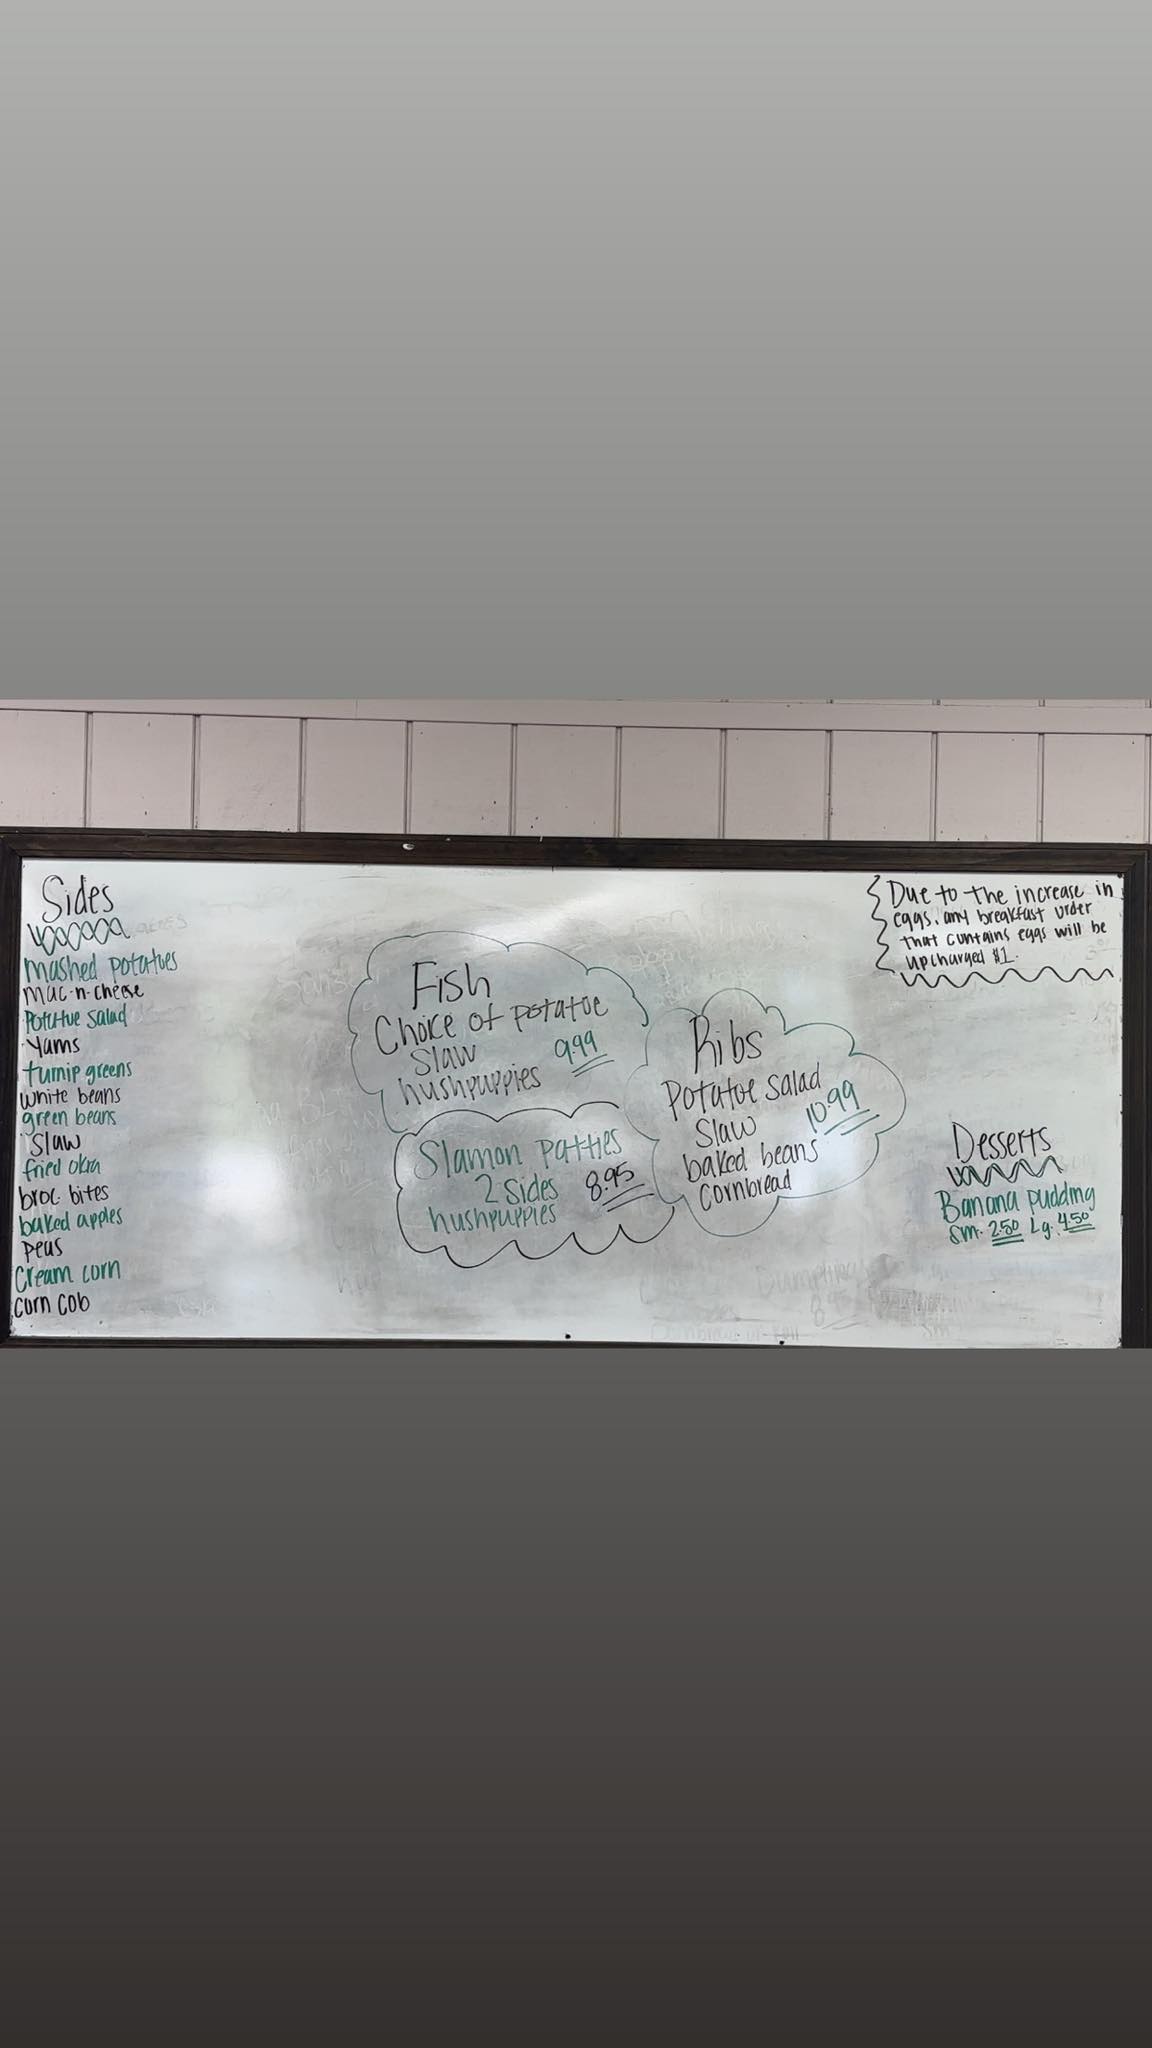 Sides
mashed potatoes
mac-n-cheese
Potatoe salad
Yams
turnip greens
white beans
green beans
Slaw
fried okra
broc. bites
baked apples
peas
Cream corn
corn cob
Fish
Choice of potatoe
Slaw 9.99
hushpuppies
Slamon Patties
2 Sides 8.95
hushpuppies
Ribs
Potatoe salad
Slaw 10.99
baked beans
cornbread
Due to the increase in
eggs, any breakfast order
that contains eggs will be
upcharged $1.
Desserts
Banana pudding
sm. 2.50 Lg. 4.50